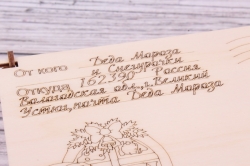 От кого Деда Мороза
и Снегурочки
Откуда 162390 Россия
Вологодская обл., г. Великий
Устюг, почта Деда Мороза